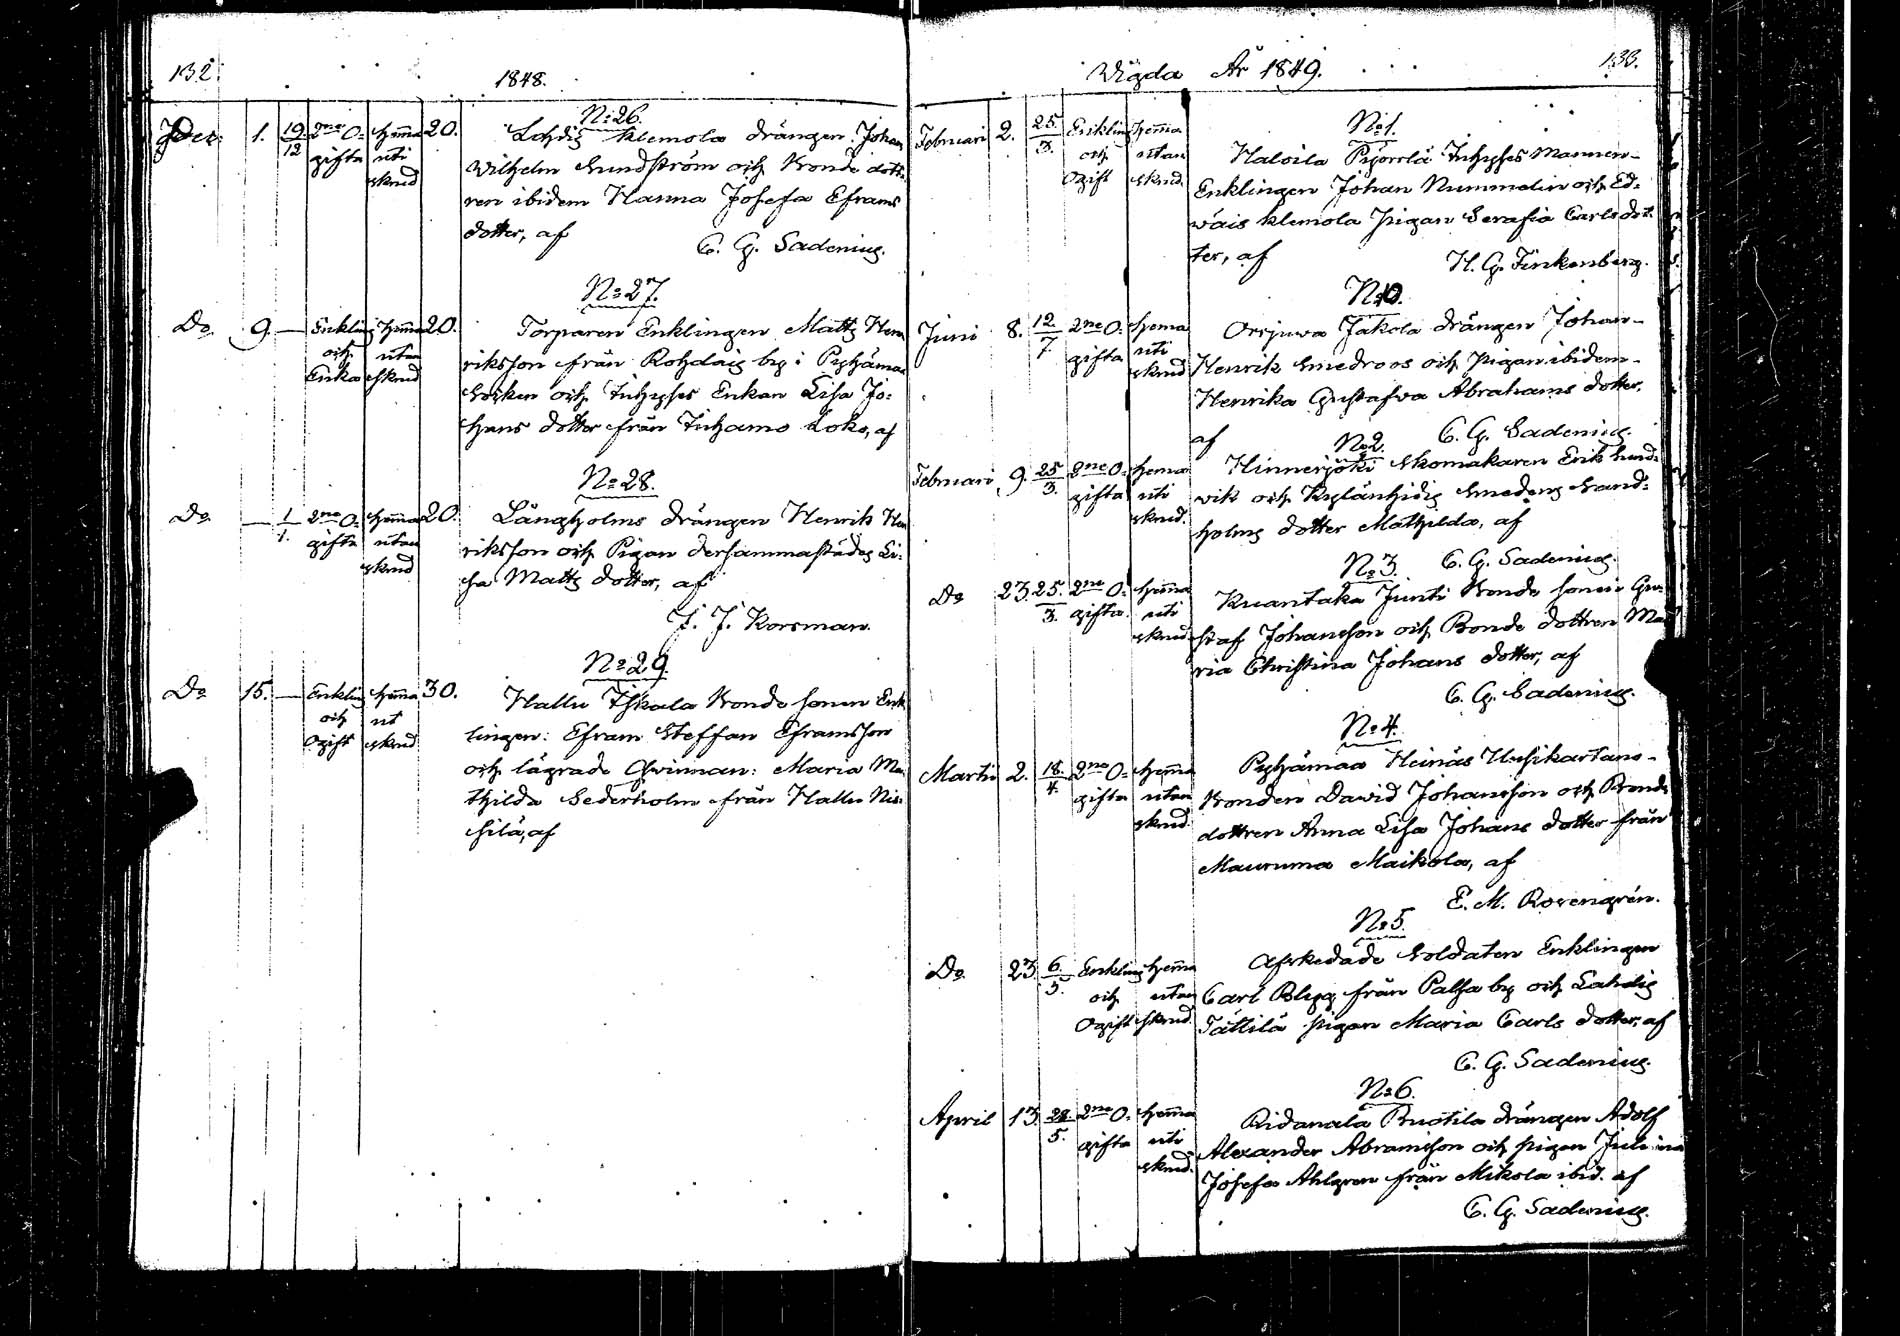 132.
1848.
Dec: 1. 19/12 2ne O= hema 20.
gifta uti
skrud
No 26.
Lahdis Klemola drängen Johan
Wilhelm Sundström och Bonde dott=
ren ibidem Hanna Josefa Eframs
dotter, af
C. G. Sadenius.
No 27.
Do 9. — Enkling hema 20.
och utan
Enka skrud
Torparen Enklingen Matts Hen
riksson från Rohdais by i Pyhämaa
Socken och Inhyses Enkan Lisa Jo=
hans dotter från Tuhamo Loko, af
No 28.
Do — 1/1. 2ne O= hema 20.
gifta utan
skrud
Långholms drängen Henrik Hen
riksson och Pigan dersammastädes Li=
sa Matts dotter, af
J. J. Korsman.
No 29.
Do 15. — Enkling hema 30.
och ut
Ogift skrud
Hallu Iskala Bonde sonen Enk
lingen: Efram Steffan Eframsson
och lägrade Qvinnan: Maria Ma
thilda Sederholm från Hallu Nis
silä, af
Wigda År 1849.
133.
Februari 2. 25/3. Enkling hema
och utan
Ogift skrud.
No 1.
Haloila Pyörelä Inhyses Mannen
Enklingen Johan Nummelin och Ed=
wais Klemola pigan Serafia Carls dot
ter, af
H. G. Finkenberg.
No 10.
Juni 8. 12/7 2ne O= hema
gifta uti
skrud
Orijuwa Jakola drängen Johan
Henrik Smedroos och pigan ibidem
Henrika Gustafva Abrahams dotter,
af
C. G. Sadenius.
No 2.
Februari 9. 25/3. 2ne O= hema
gifta uti
skrud.
Hinnerjoki Skomakaren Erik Lund=
vik och Kylänhidis Smedens Sand=
holms dotter Mathilda, af
C. G. Sadenius.
No 3.
Do 23. 25./3. 2ne O= hema
gifta. uti
skrud
Kuantaka Junti Bonde sonen Gu
staf Johansson och Bonde dottren Ma
ria Christina Johans dotter, af
C. G. Sadenius.
No 4.
Martii 2. 18./4. 2ne O= hema
gifta utan
skrud.
Pyhämaa Heinäs Uusikartano
Bonden David Johansson och Bonde
dottren Anna Lisa Johans dotter från
Mauruma Maikola, af
E. M. Rosengrén.
No 5.
Do 23. 6./5. Enkling hema
och utan
Ogift skrud.
Afskedade Soldaten Enklingen
Carl Blygg från Palsa by och Lahdis
Tättilä pigan Maria Carls dotter, af
C. G. Sadenius.
No 6.
April 13. 28./5. 2ne O= hema
gifta uti
skrud.
Ridanala Ruotila drängen Adolf
Alexander Abramsson och pigan Juliana
Josefa Ahlgren från Mikola ibid. af
C. G. Sadenius.